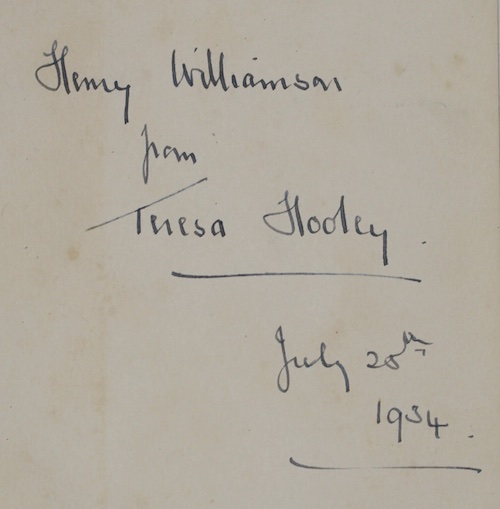 Henry Williamson
from
Teresa Hooley.
July 20th
1934.